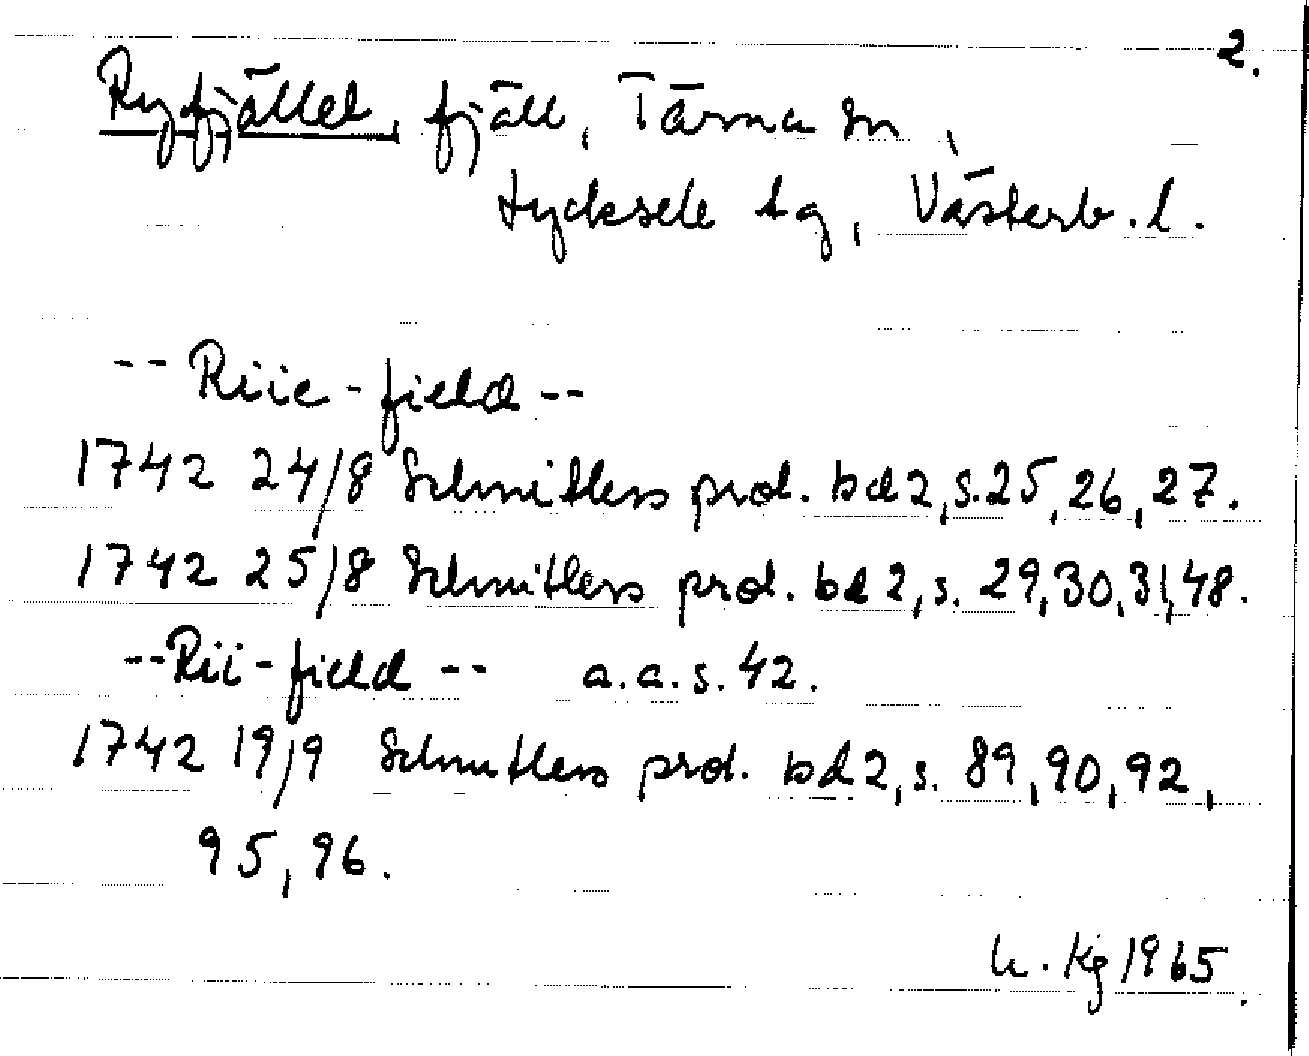 2.
Ryfjället, fjäll, Tärna sn,
Lycksele tg, Västerb. l.
-- Riie-field --
1742 24/8 Schnitlers prot. bd 2, s. 25, 26, 27.
1742 25/8 Schnitlers prot. bd 2, s. 29, 30, 31, 48.
-- Rii-field -- a.a.s. 42.
1742 19/9 Schnitlers prot. bd 2, s. 89, 90, 92,
95, 96.
h. Kg 1965.